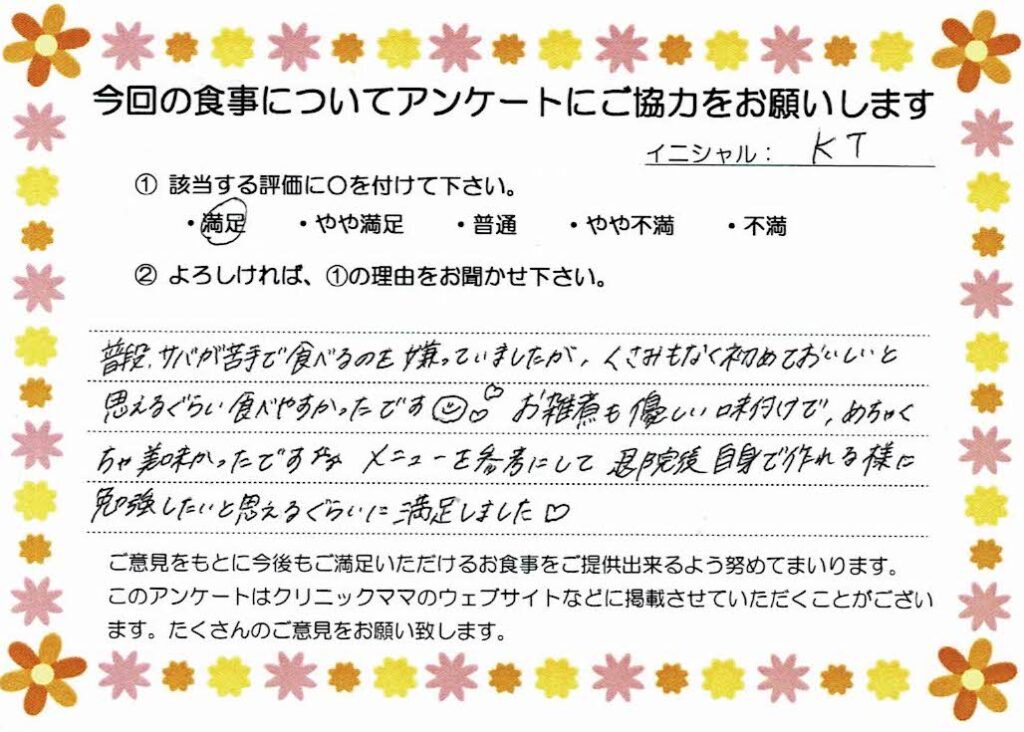 今回の食事についてアンケートにご協力をお願いします
イニシャル： KT
① 該当する評価に○を付けて下さい。
・満足 ・やや満足 ・普通 ・やや不満 ・不満
② よろしければ、①の理由をお聞かせ下さい。
普段、サバが苦手で食べるのを嫌っていましたが、くさみもなく初めておいしいと
思えるぐらい食べやすかったです お雑煮も優しい味付けで、めちゃく
ちゃ美味かったです メニューを参考にして退院後自身で作れる様に
勉強したいと思えるぐらいに満足しました♡
ご意見をもとに今後もご満足いただけるお食事をご提供出来るよう努めてまいります。
このアンケートはクリニックママのウェブサイトなどに掲載させていただくことがござい
ます。たくさんのご意見をお願い致します。